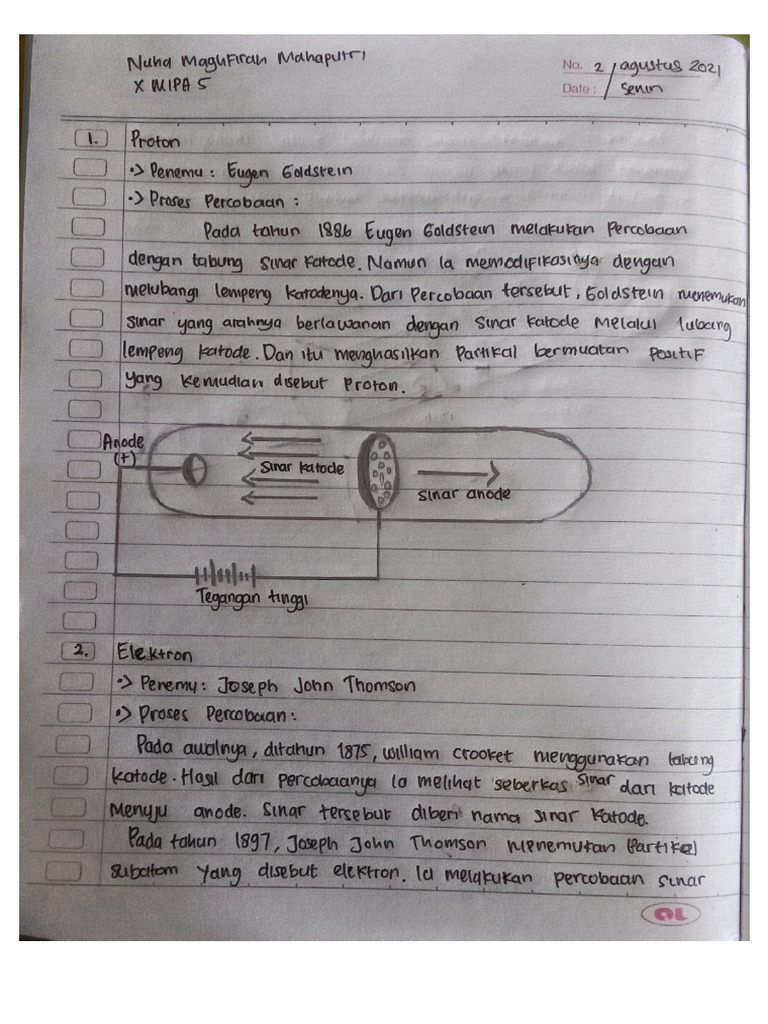 Nuha Magufirah Mahaputri
X MIPA 5
No. 2 / agustus 2021
Date : / Senin
1. Proton
•> Penemu : Eugen Goldstein
•> Proses Percobaan :
Pada tahun 1886 Eugen Goldstein melakukan Percobaan
dengan tabung sinar katode. Namun Ia memodifikasinya dengan
melubangi lempeng katodenya. Dari Percobaan tersebut, Goldstein menemukan
sinar yang arahnya berlawanan dengan sinar katode melalui lubang
lempeng katode. Dan itu menghasilkan Partikal bermuatan positif
yang kemudian disebut Proton.
Anode
(+)
Sinar katode
Sinar anode
Tegangan tinggi
2. Elektron
•> Penemu : Joseph John Thomson
•> Proses Percobaan :
Pada awalnya, ditahun 1875, william crooket menggunakan tabung
katode. Hasil dari percobaanya Ia melihat seberkas sinar dari katode
menuju anode. Sinar tersebut diberi nama sinar katode.
Pada tahun 1897, Joseph John Thomson menemukan Partikel
subatom yang disebut elektron. Ia melakukan percobaan sinar